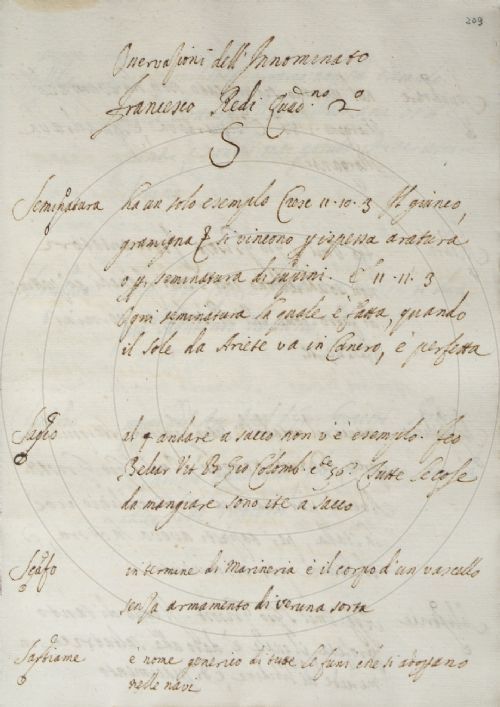 209
Osservazioni dell'Innominato
Francesco Redi Quad.no 2o
S
Seminatura ha un solo esempio Cresc 11. 10. 3 Il giunco,
gramigna si vincono p ispessa aratura
o p seminatura di lupini. E 11. 11. 3
Ogni seminatura la quale è fatta, quando
il sole da Ariete va in Cancro, è perfetta
Sacco al § andare a sacco non v'è esempio. Feo
Belcar Vit B. Gio Colomb. c. 56. Tutte le cose
da mangiare sono ite a sacco
Scafo in termine di Marineria è il corpo d'un vascello
senza armamento di veruna sorta
Sartiame è nome generico di tutte le funi che si adoprano
nelle navi